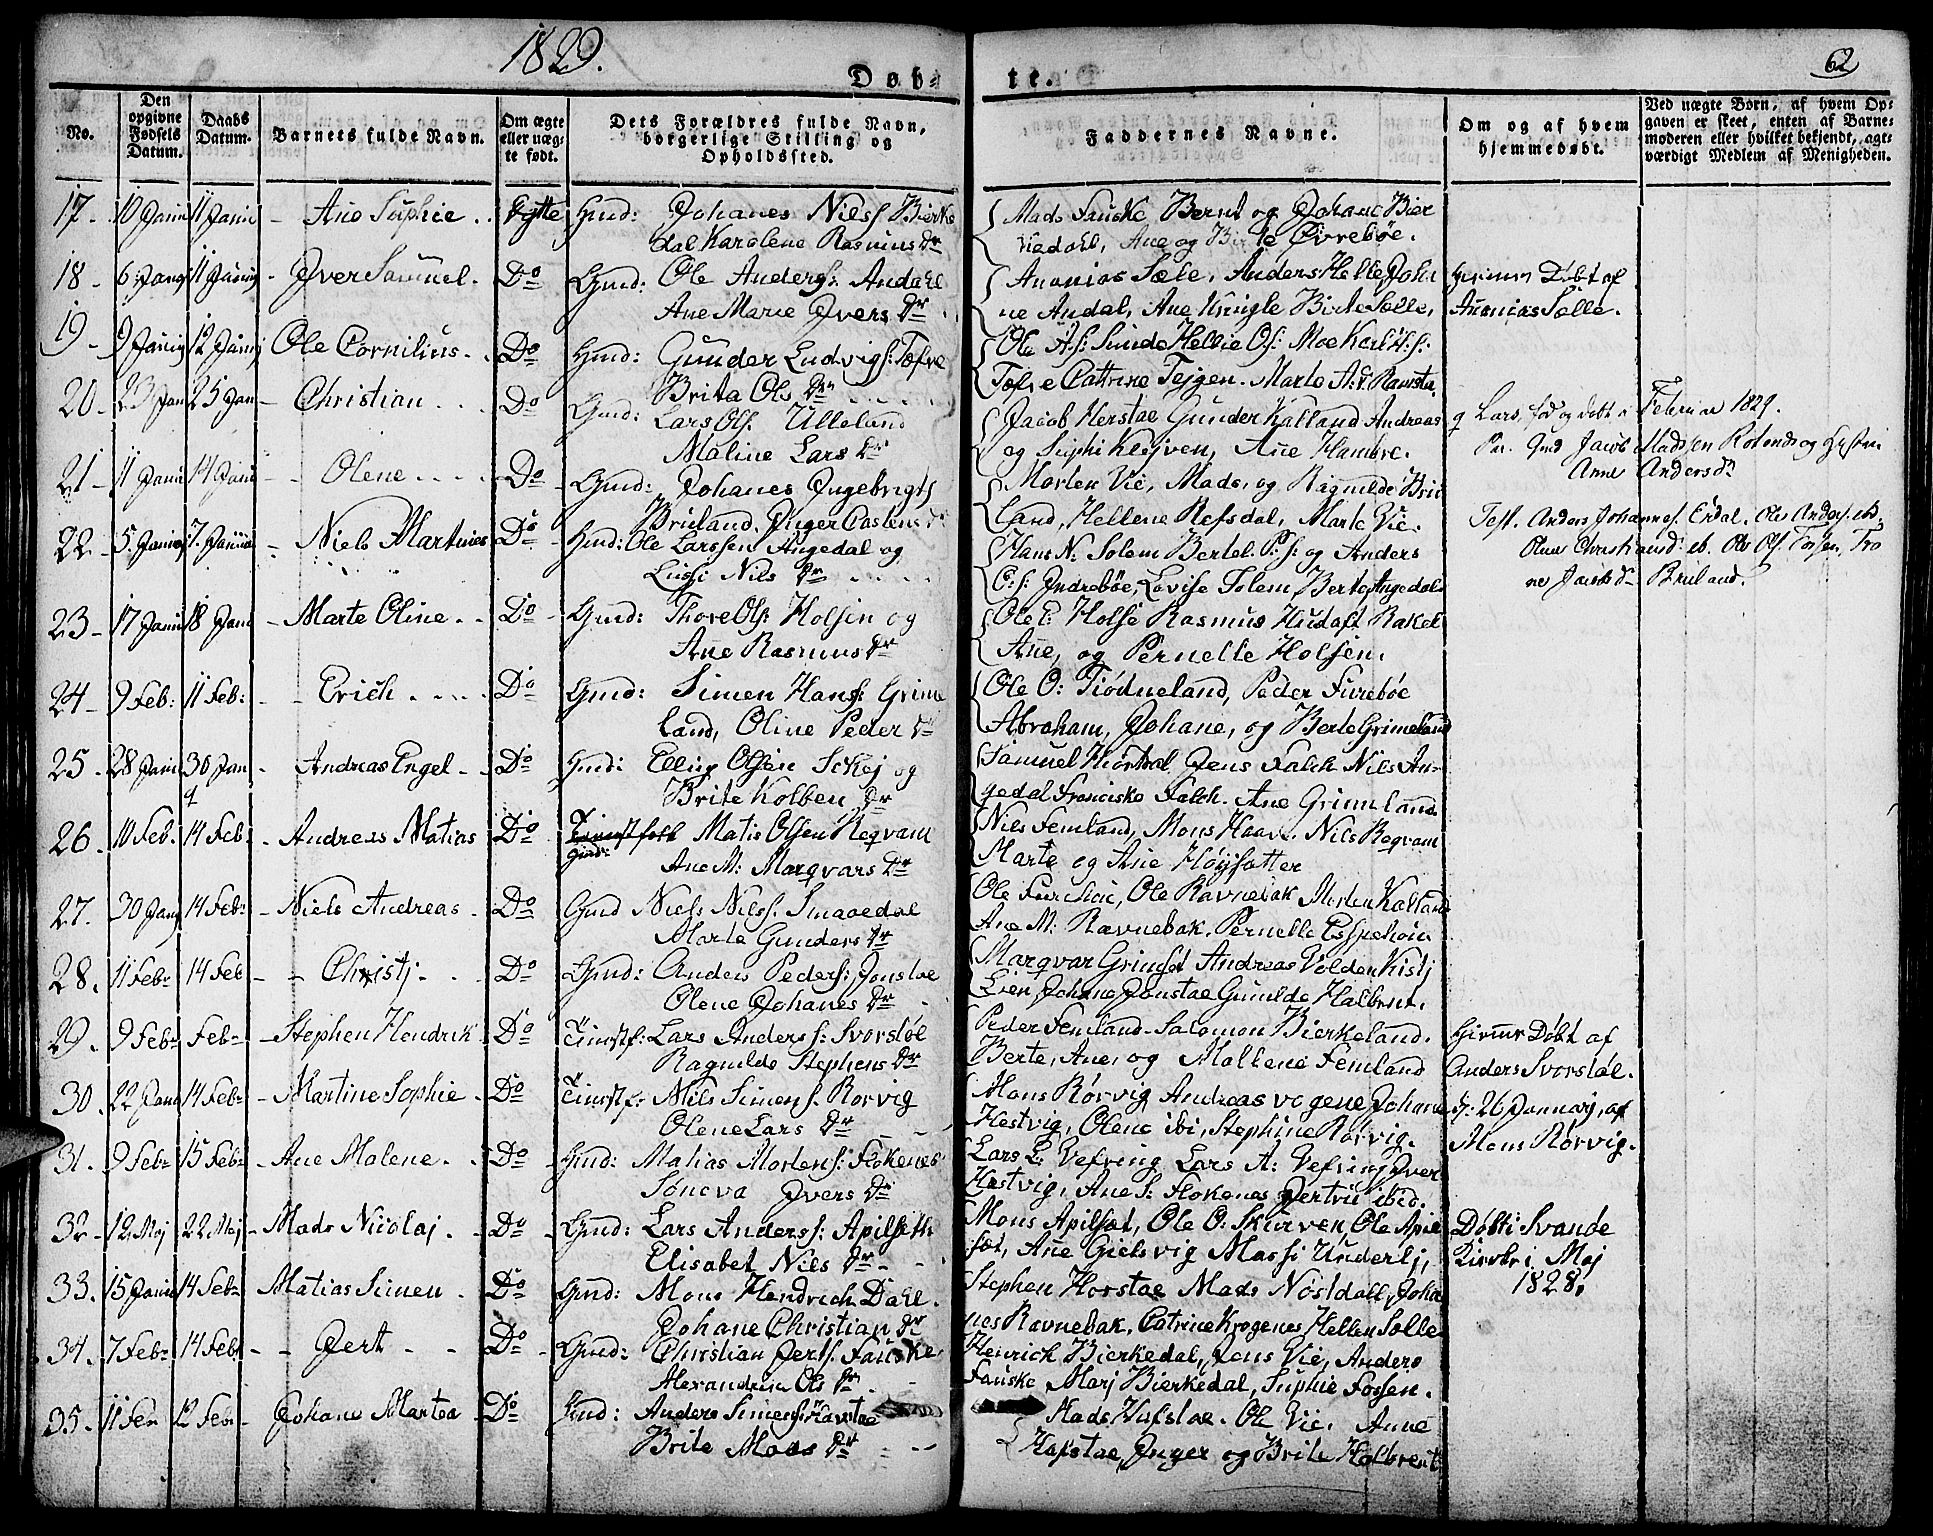 1829.
62
Døb-
te.
No.
Den opgivne Fødsels Datum.
Daabs Datum.
Barnets fulde Navn.
Om ægte eller uægte født.
Dets Forældres fulde Navn, borgerlige Stilling og Opholdssted.
Faddernes Navne.
Om og af hvem hjemmedøbt.
Ved uægte Børn, af hvem Opgaven er skeet, enten af Barnemoderen eller hvilket bekjendt, agtværdigt Medlem af Menigheden.
17 - 10 Janu 11 Janu - Ane Sophie . . Ægte Gmd: Johanes Nilss. Birke
dal Karolene Rasmus Dr
Mads Fauske Bernt og Johane Bier
kedahl, Ane og Birte Øvrebøe.
18 - 6 Jang 11 Januy - Jver Samuel. Do Gmd: Ole Anders: Andahl
Ane Marie Jvers Dr
Ananias Sæle, Anders Helle, Joha
ne Andal, Ane Kringle Birte Sælle,
Hiemme Døbt af
Ananias Sælle.
19 - 9 Januy 12 Januy Ole Cornilius . . Do Gmd: Gunder Ludvigs: Tefre
Brita Ols Dr
Ole A.s: Sunde Hellie O.s: Moe Karl H.s:
Tefre Cattrine Tejgen. Marte A.d: Ramsta.
20 - 23 Jan 25 Jan - Christian . . . Do Gmd: Lars Ols. Ulleland
Maline Lars Dr
Jacob Herstae Gunder Kalland Andreas
og Suphi Klejven, Ane Hambre.
9 Lars, fød og døbt i Februar 1829.
Par. Gmd Jacob Madssen Rotende og Hustru
Anne Andersdr
21 - 11 Janu 14 Janu - Olene . . . . Do Gmd: Johanes Ingebrigts
Bruland. Inger Carstens D
Morten Vie, Mads, og Ragnilde Bru
land, Hellene Refsdal, Marte Vie.
Test. Anders Johannes. Erdal. Ole Anders. ib.
Oline Christiansd: ib. Ole Ols. Fossen, Tro
ne Jacobsd Bruland.
22 - 5 Januy 7 Janua - Niels Martines Do Gmd: Ole Larssen Angedal og
Lussi Nils Dr
Hans N: Solem Bertel P.s: og Anders
O:s: Indrebøe, Lovise Solem Berte Angedal
23 - 17 Janu 18 Janu - Marte Oline . . Do Gmd: Thore Ols: Holsen og
Ane Rasmus Dr
Ole E: Holse Rasmus Hudaft Rakel
Ane, og Pernelle Holsen.
24 - 9 Feb: 11 Feb: - Erich . . . . Do Gmd: Simen Hans: Grime
land, Oline Peder D
Ole O: Tiødneland, Peder Furebøe
Abraham, Johane, og Berte Grimeland
25 . 28 Janu 30 Jan - Andreas Engel . . Do Gmd: Elling Olsen Schej og
Brite Kolben Dr
Samuel Hiortdal Jens Falch Nils An-
gedal Franciske Falch. Ane Grimeland
26. 10 Feb: 14 Feb: - Andreas Matias Do Matis Olsen Reqvam
Gmd:
Ane M: Marqvars Dr
Niels Femland, Mons Haave. Nils Reqvam
Marte og Ane Høysatter
27. 30 Jany 14 Feb: - Niels Andreas . Do Gmd Niels Nilss. Smaaedal
Marte Gunders Dr
Ole Furebøe, Ole Ravnebak Morten Kalland
Ane M: Ravnebak. Pernelle Espehøin
28. 11 Feb: 14 Feb - Christj . . . Do Gmd: Anders Peders: Jonstae
Olene Johanes Dr
Marqvar Grimset Andreas Volden Kistj
Lien Johane Jonstae Gunilde Halbrent.
29. 9 Feb: Feb: - Stephen Hendrik Do Tienestf: Lars Anders s: Svorstøl
Ragnilde Stephens Dr
Peder Femland. Salomon Bierkeland.
Berte, Ane, og Mallene Femland
Hiemme Døbt af
Anders Svorstøl.
30. 22 Janu 14 Feb: - Martine Sophie . Do Tienestf: Nils Simens. Rørvig
Olene Lars Dr
Mons Rørvig Andreas Johane
Hestvig, Olene ibi, Stephine Rørvig.
d: 26 January, af
Mons Rørvig.
31. 9 Feb: 15 Feb: - Ane Malene . . Do Gmd: Matias Mortens: Flokenes
Søneva Jvers Dr
Lars L. Vefring Lars A: Vefring Jver
Hestvig, Ane S: Flokenes Jertrü ibid.
32 - 12 Maj 22 Maj - Mads Nicolaj . Do Gmd: Lars Anders s: Apilseth
Elisabet Niels Dr
Mons Apilset, Ole O: Skurven, Ole Apil
sæt, Ane Gielsvig Massi Underlj,
Døbt i Svanøe
Kirke i Maj
1828.
33. 15 Janu 14 Feb: - Matias Simen . Do Gmd: Mons Hendrich Dahl.
Johane Christian Dr
Stephen Horstae Mads Nøstdall, Joha
nes Ravnebak. Catrine Krogenes Hellen Sælle
34. 7 Feb: 14 Feb: - Jert . . Do Gmd: Christian Jerts. Fauske.
Alexandria Ols Dr
Henrich Bierkedal, Jens Vie, Anders
Fauske Marj Bierkedal, Suphie Fossen.
35. 11 Feb: 12 Feb: - Johane Martea . Do Gmd: Anders Simens. Havstae
Brite Mads Dr
Mads Hafstae. Ole Vie. Anne
Hafstae, Inger og Brite Halbrent